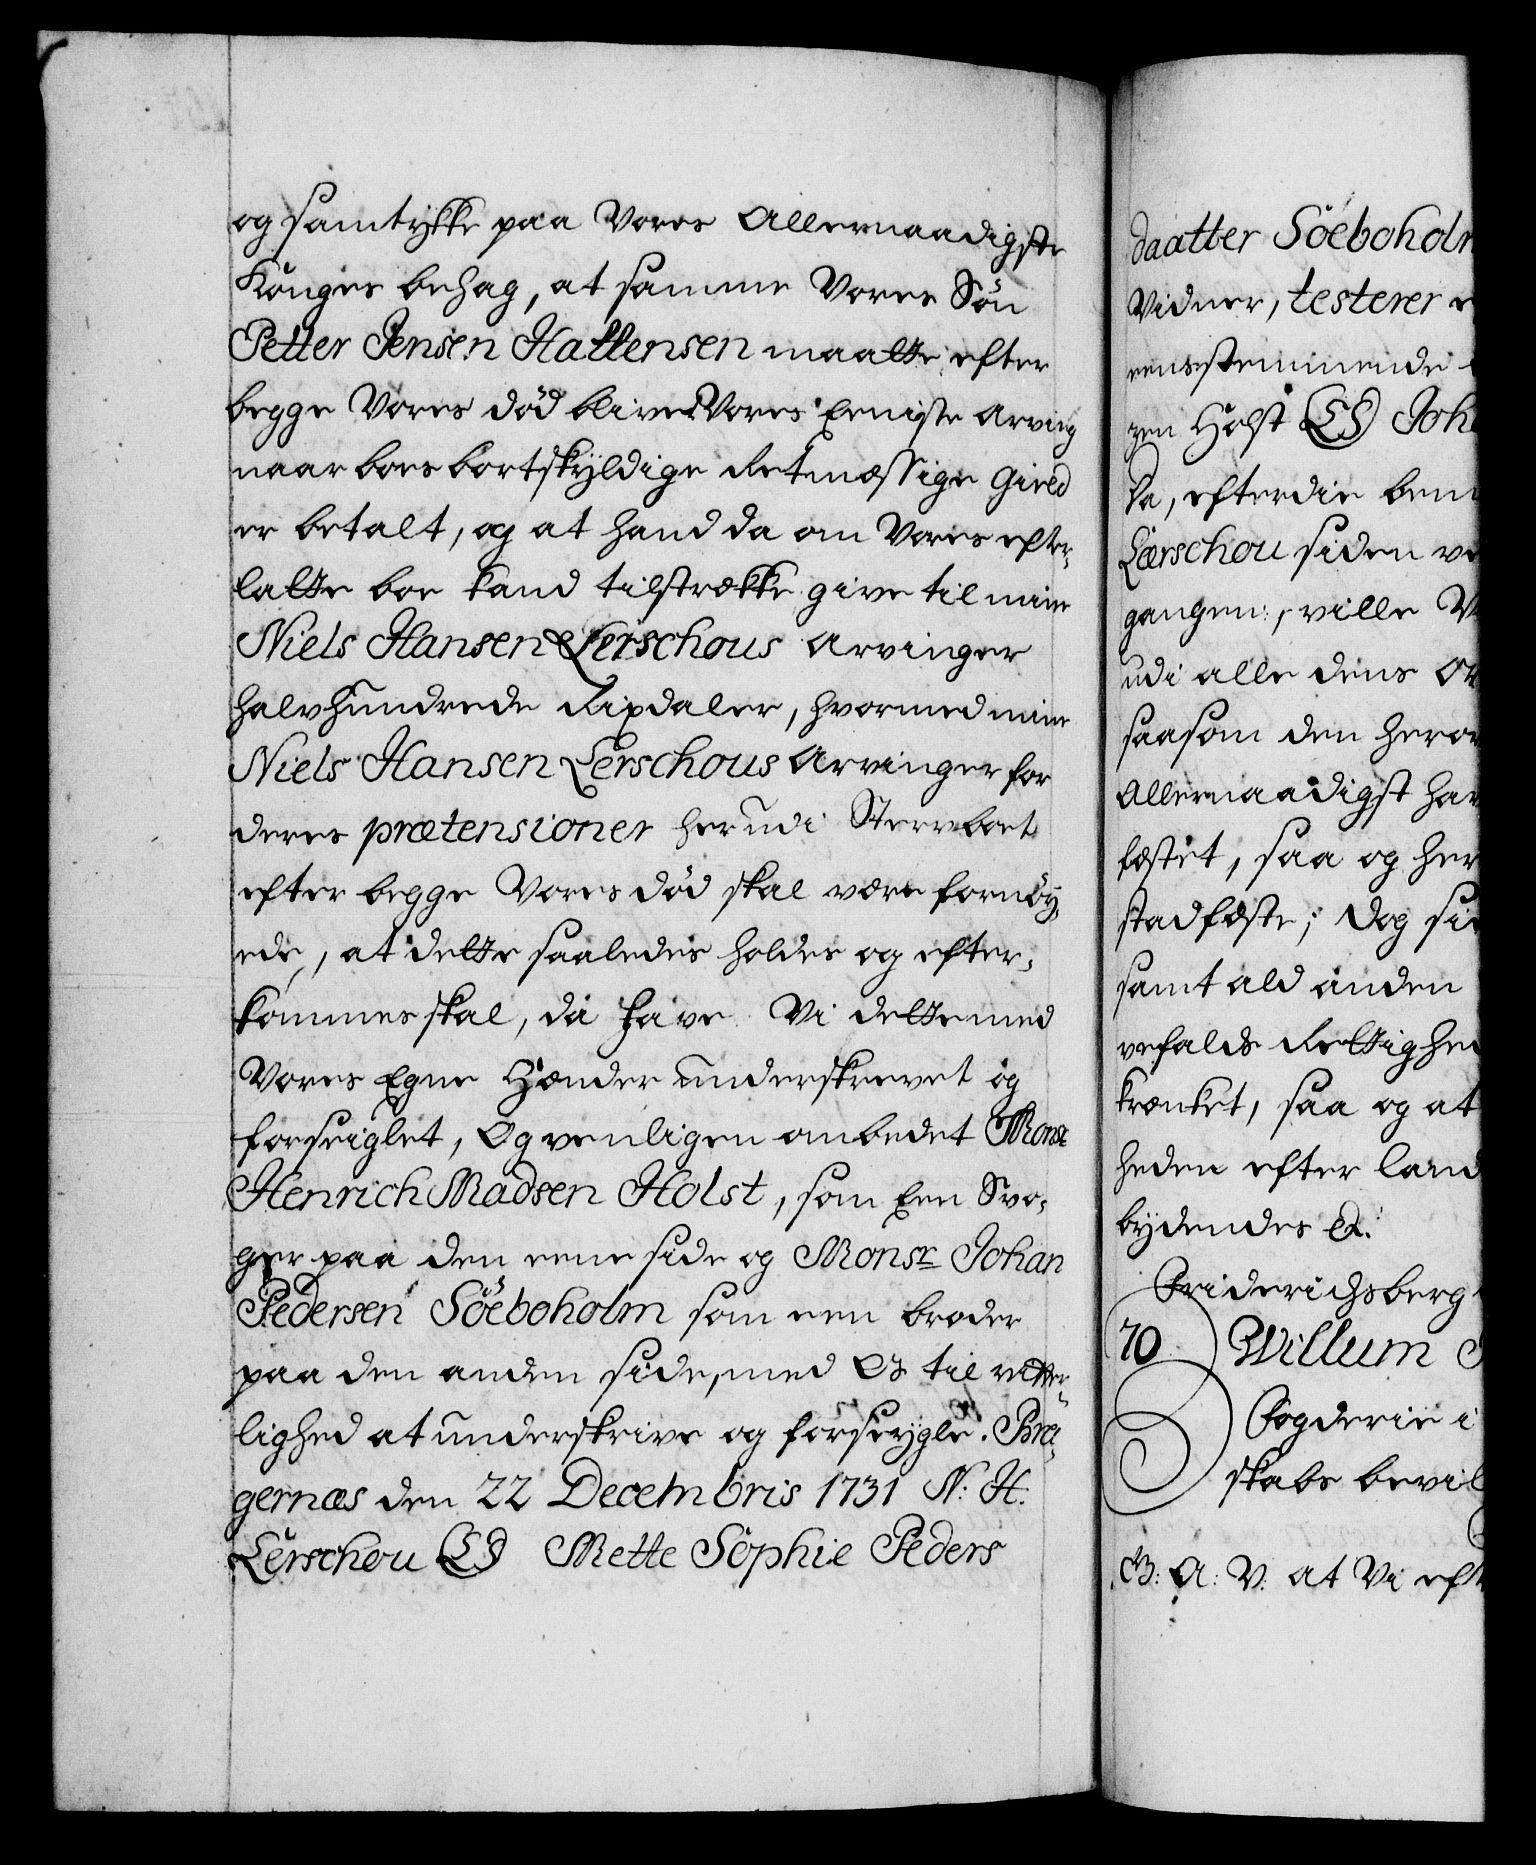 og samtykke paa Vores Allernaadigste
Konges behag, at samme Vores Søn
Petter Jensen Hattensen maatte efter
begge Vores død blive Vores Eeniste Arving
naar boes bortskyldige Retmæssige Gield
er betalt, og at hand da om Vores efter-
latte boe kand tilstrække give til mine
Niels Hansen Lerschous Arvinger
halvhundrede Rixdaler, hvormed mine
Niels Hansen Lerschous Arvinger for
deres prætensioner herudi Sterveboet
efter begge Vores død skal være fornöy-
ede, at dette saaledes holdes og efter-
kommes skal, da have Vi dette med
Vores Egne Hænder underskrevet og
forseiglet, Og venligen ombedet Monsr
Henrich Madsen Holst, som Een Svo-
ger paa den eene side og Monsr Johan
Pedersen Söeboholm som een broder
paa den anden side, med Os til vitter-
lighed at underskrive og forseygle. Bra-
gernæs den 22 Decembris 1731 N: H:
Lerschou LS Mette Sophie Peders
daatter Söeboholm
Vidner, testerer
eensstemmende
gen Holst (LS) Joh
Da, efterdie bem
Lærschou siden ve
gangen, ville V
udi alle dens Or
saasom den heroven
Allernaadigst har
fæstet, saa og her
stadfæste; dog si
samt ald anden
vefalds Rettighed
krænket, saa og at
heden efter land
bydendes &.
Friderichsberg
70 Willum
Fogderie i
skabs bevil
G: A: V: at Vi eft